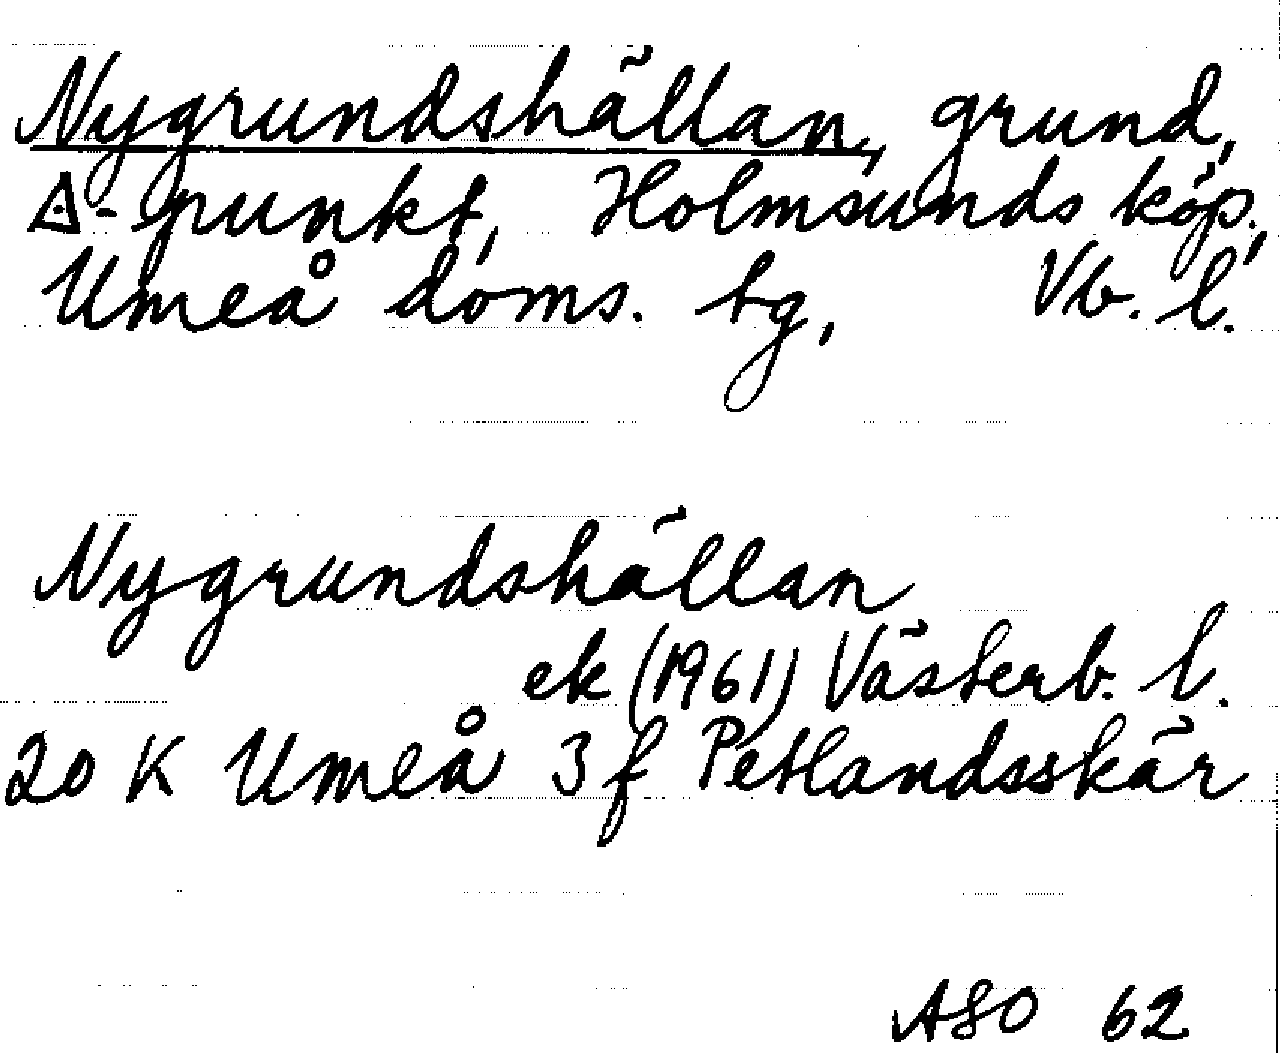 Nygrundshällan, grund,
△-punkt, Holmsunds köp.,
Umeå doms. tg, Vb. l.
Nygrundshällan
ek (1961) Västerb. l.
20 K Umeå 3 f Petlandsskär
ASO 62